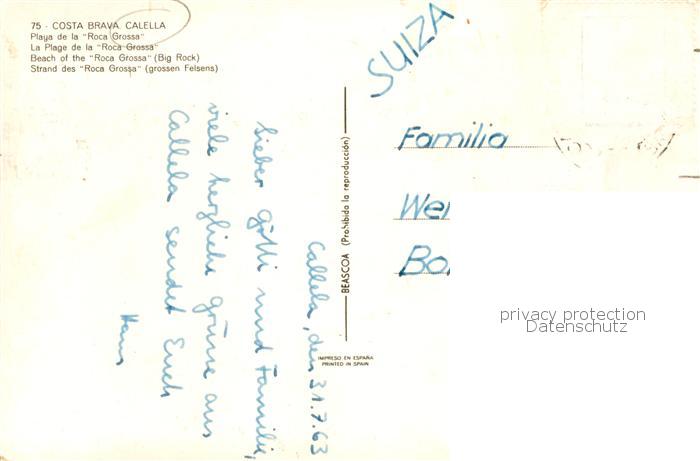 75 - COSTA BRAVA. CALELLA
Playa de la "Roca Grossa"
La Plage de la "Roca Grossa"
Beach of the "Roca Grossa" (Big Rock)
Strand des "Roca Grossa" (grossen Felsens)
Callela, den 31.7.63
Lieber Götti und Familie,
viele herzliche Grüsse aus
Callela sendet Euch
Hans
BEASCOA (Prohibida la reproducción)
IMPRESO EN ESPAÑA
PRINTED IN SPAIN
SUIZA
Familia
We
Bo
privacy protection
Datenschutz